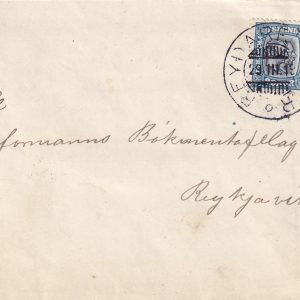 REYÐA
29.III.1
formanns Bókmentafélag
Reykjavík